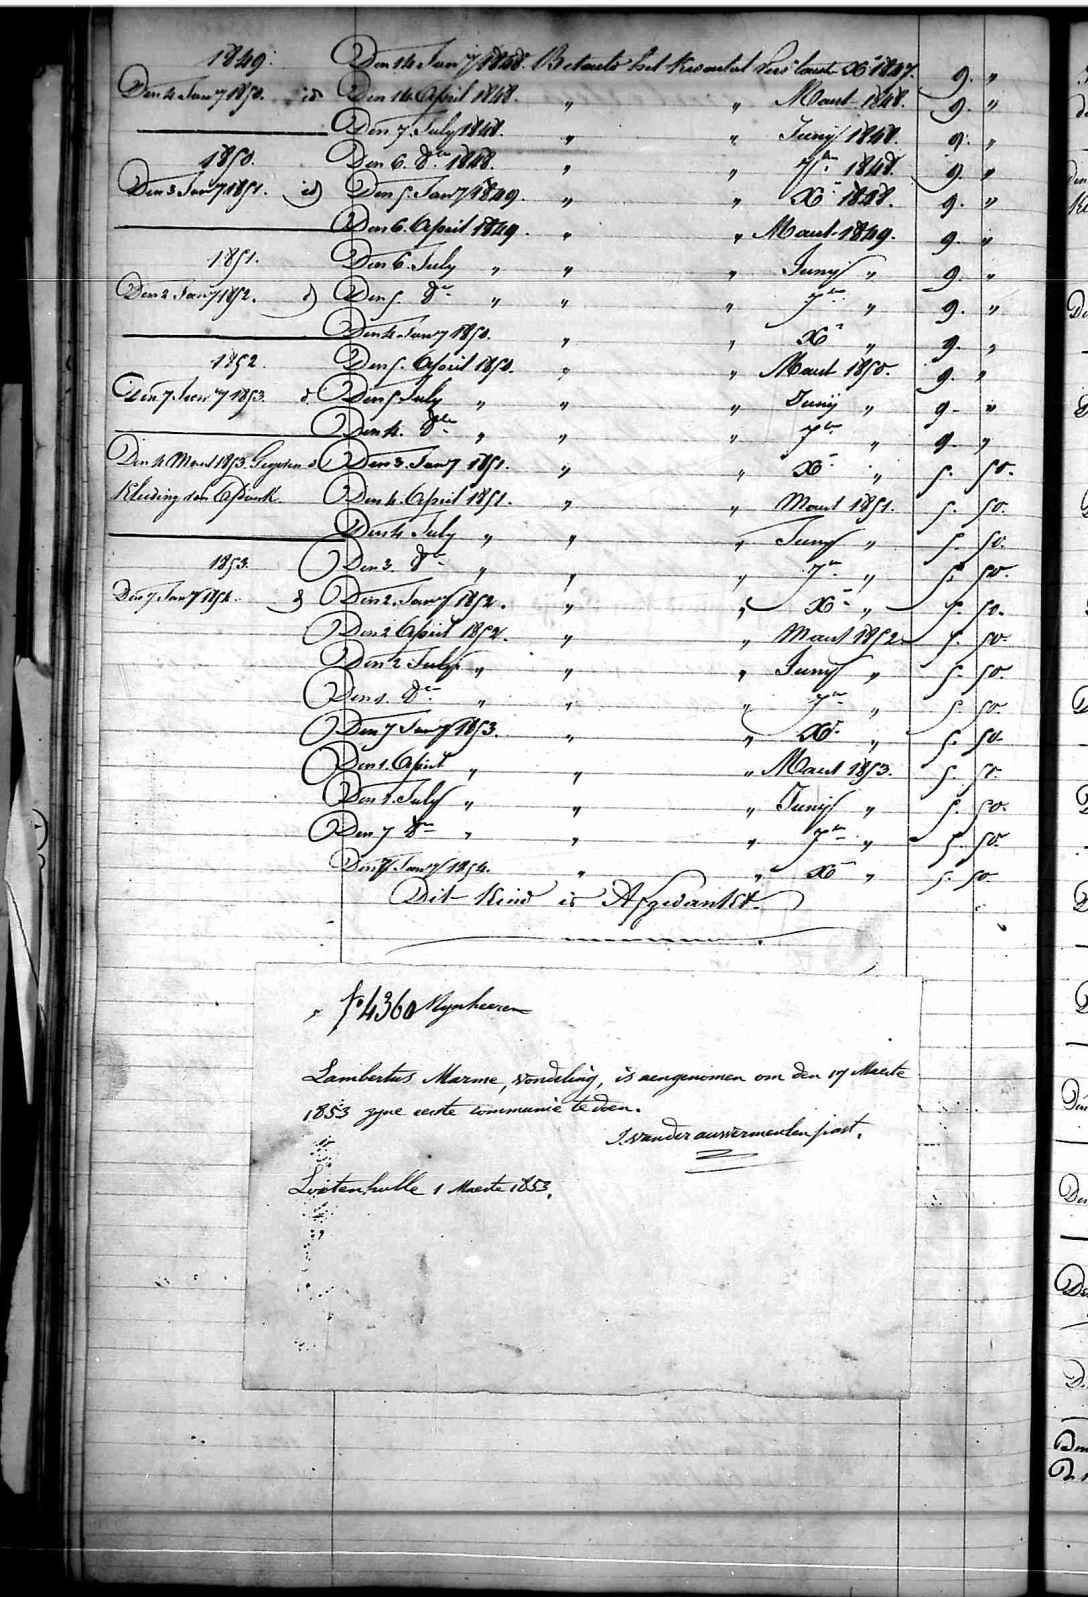 1849. Den 14 Jany 1848. Betaelt het kwartal vers. laust Xr 1847. 9. "
Den 4 Jany 1850. id Den 14 April 1848. " " Maart 1848. 9. "
Den 7. July 1848. " " Juny 1848. 9. "
1850. Den 6. 8er 1848. " " 7er 1848. 9. "
Den 3 Jany 1851. id Den 5. Jany 1849. " " Xr 1848. 9. "
Den 6. April 1849. " " Maart 1849. 9. "
1851. Den 6. July " " " Juny " 9. "
Den 2 Jany 1852. d Den 5. 8er " " " 7er " 9. "
Den 4. Jany 1850. " " Xr " 9. "
1852. Den 5. April 1850. " " Maart 1850. 9. "
Den 7 Jany 1853. d. Den 5 July " " " Juny " 9. "
Den 4. 8ber " " " 7er " 9. "
Den 4 Maart 1853. d Den 3. Jany 1851. " " Xr " 5. 50.
Kleeding den Den 4. April 1851. " " Maart 1851. 5. 50.
Den 4 July " " " Juny " 5. 50.
1853. Den 3. 8er " " " 7er " 5. 50.
Den 7 Jany 1854. d Den 2. Jany 1852. " " Xr " 5. 50.
Den 2 April 1852. " " Maart 1852. 5. 50.
Den 2 July " " " Juny " 5. 50.
Den 1. 8er " " " 7er " 5. 50.
Den 7 Jany 1853. " " Xr " 5. 50.
Den 1. April " " " Maart 1853. 5. 50.
Den 1. July " " " Juny " 5. 50.
Den 7 8er " " " 7er " 5. 50.
Den 7 Jany 1854. " " Xr " 5. 50.
Dit Kind is Afgedankt.
No 4360 Mynheeren
Lambertus Marme, vondeling, is aengenomen om den 17 Maerte
1853 zyne eerste communie te doen.
J. vander auwermeulen past.
Lootenhulle 1 Maerte 1853.